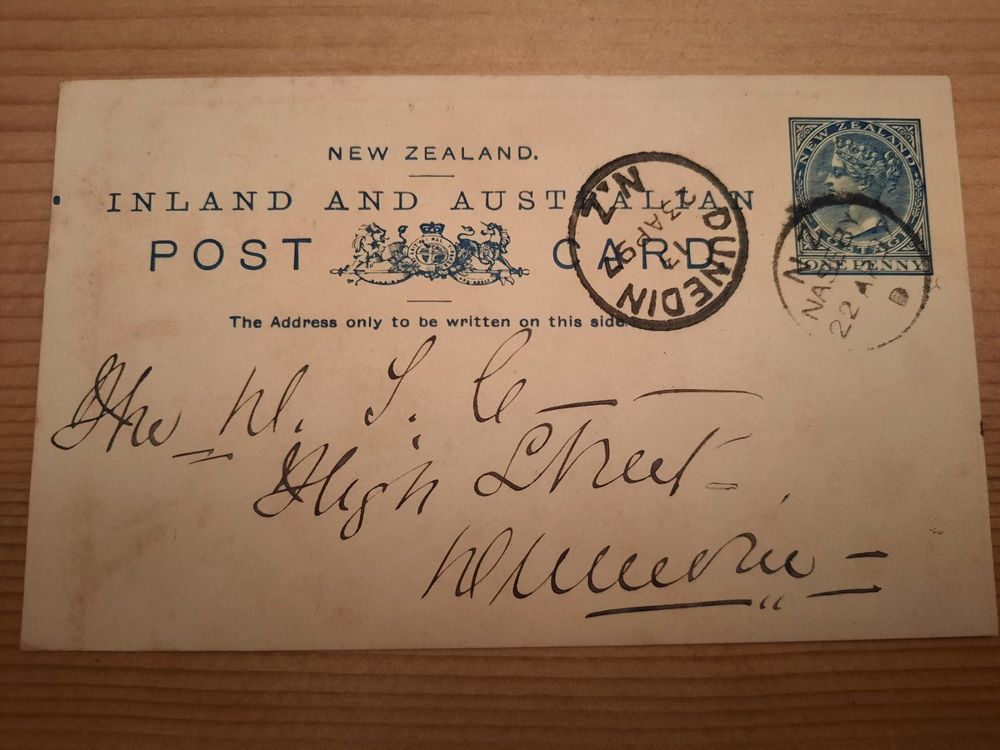 NEW ZEALAND.
INLAND AND AUSTRALIAN
POST CARD
The Address only to be written on this side.
NEW ZEALAND
POSTAGE
ONE PENNY
DUNEDIN N.Z
AP 97
N.Z
NASEBY
22 A
The D. S. C
High Street
Dunedin